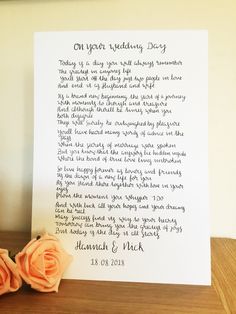 On Your Wedding Day
Today is a day you will always remember
The greatest in anyone's life
You'll start off the day just two people in love
And end it as Husband and Wife
It's a brand new beginning, the start of a journey
With moments to cherish and treasure
And although there'll be times when you
both disagree
These will surely be outweighed by pleasure
You'll have heard many words of advice in the
past
When the secrets of marriage were spoken
But you know that the answers lie hidden inside
Where the bond of true love lies unbroken
So live happy forever as lovers and friends
It's the dawn of a new life for you
As you stand there together with love in your
eyes
From the moment you whisper 'I Do'
And with luck all your hopes and your dreams
can be real
May success find its way to your hearts
Tomorrow can bring you the greatest of joys
But today is the day it all starts
Hannah & Nick
18.08.2018